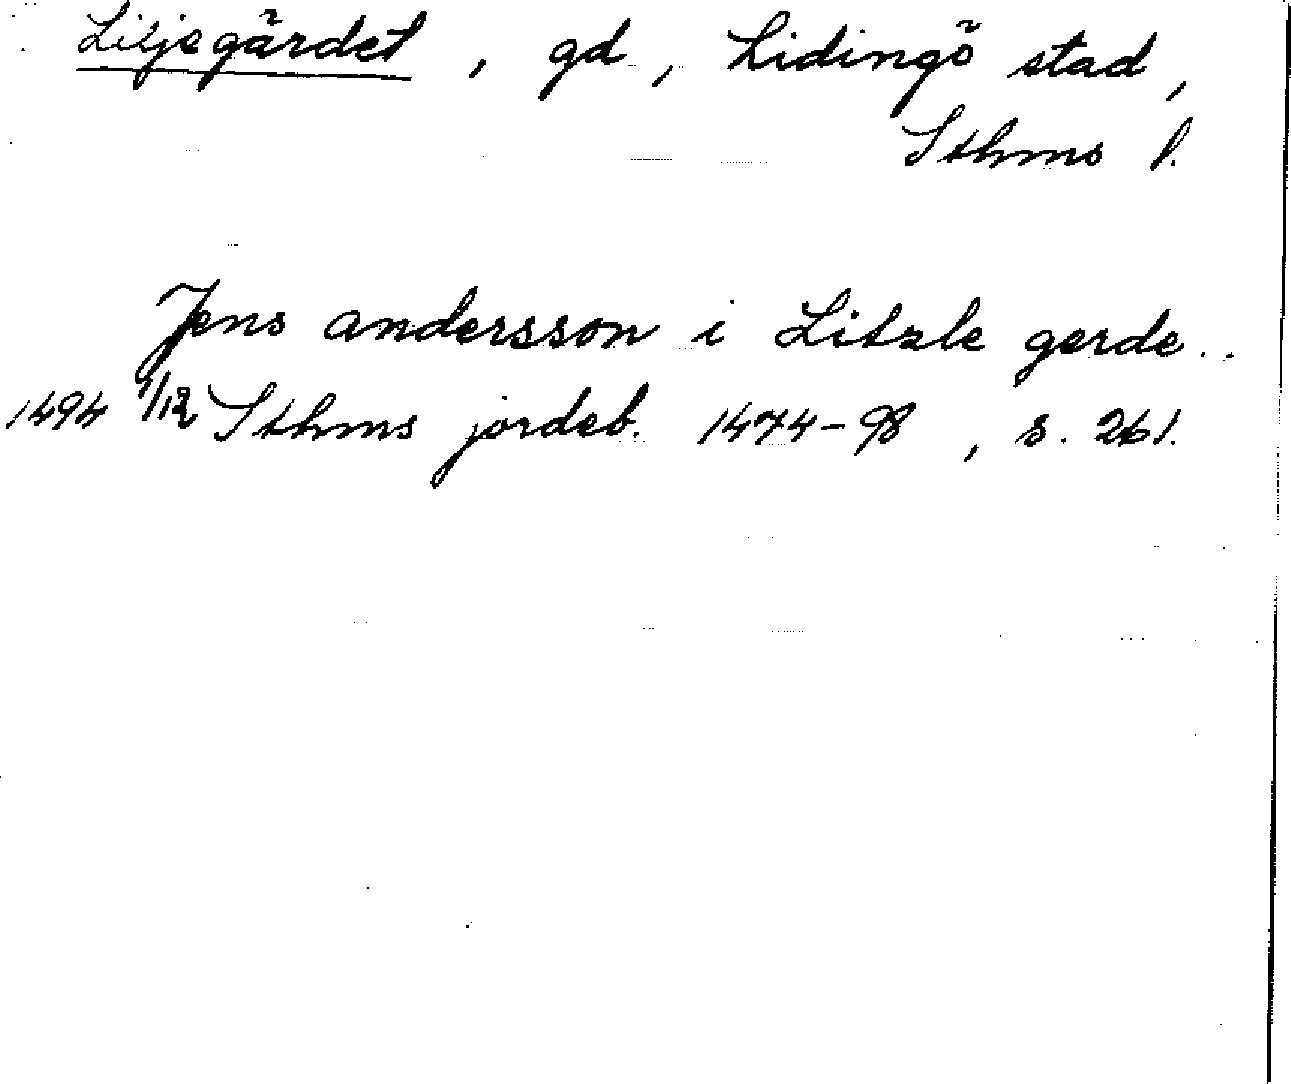 Liljegärdet, gd, Lidingö stad,
Sthms l.
Jens andersson i Litzle gerde..
1494 1/12 Sthms jordeb. 1474-98, s. 261.